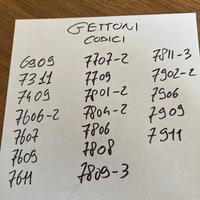 GETTONI
CODICI
6909 7707-2 7811-3
7311 7709 7902-2
7409 7801-2 7906
7606-2 7804-2 7909
7607 7806 7911
7609 7808
7611 7809-3